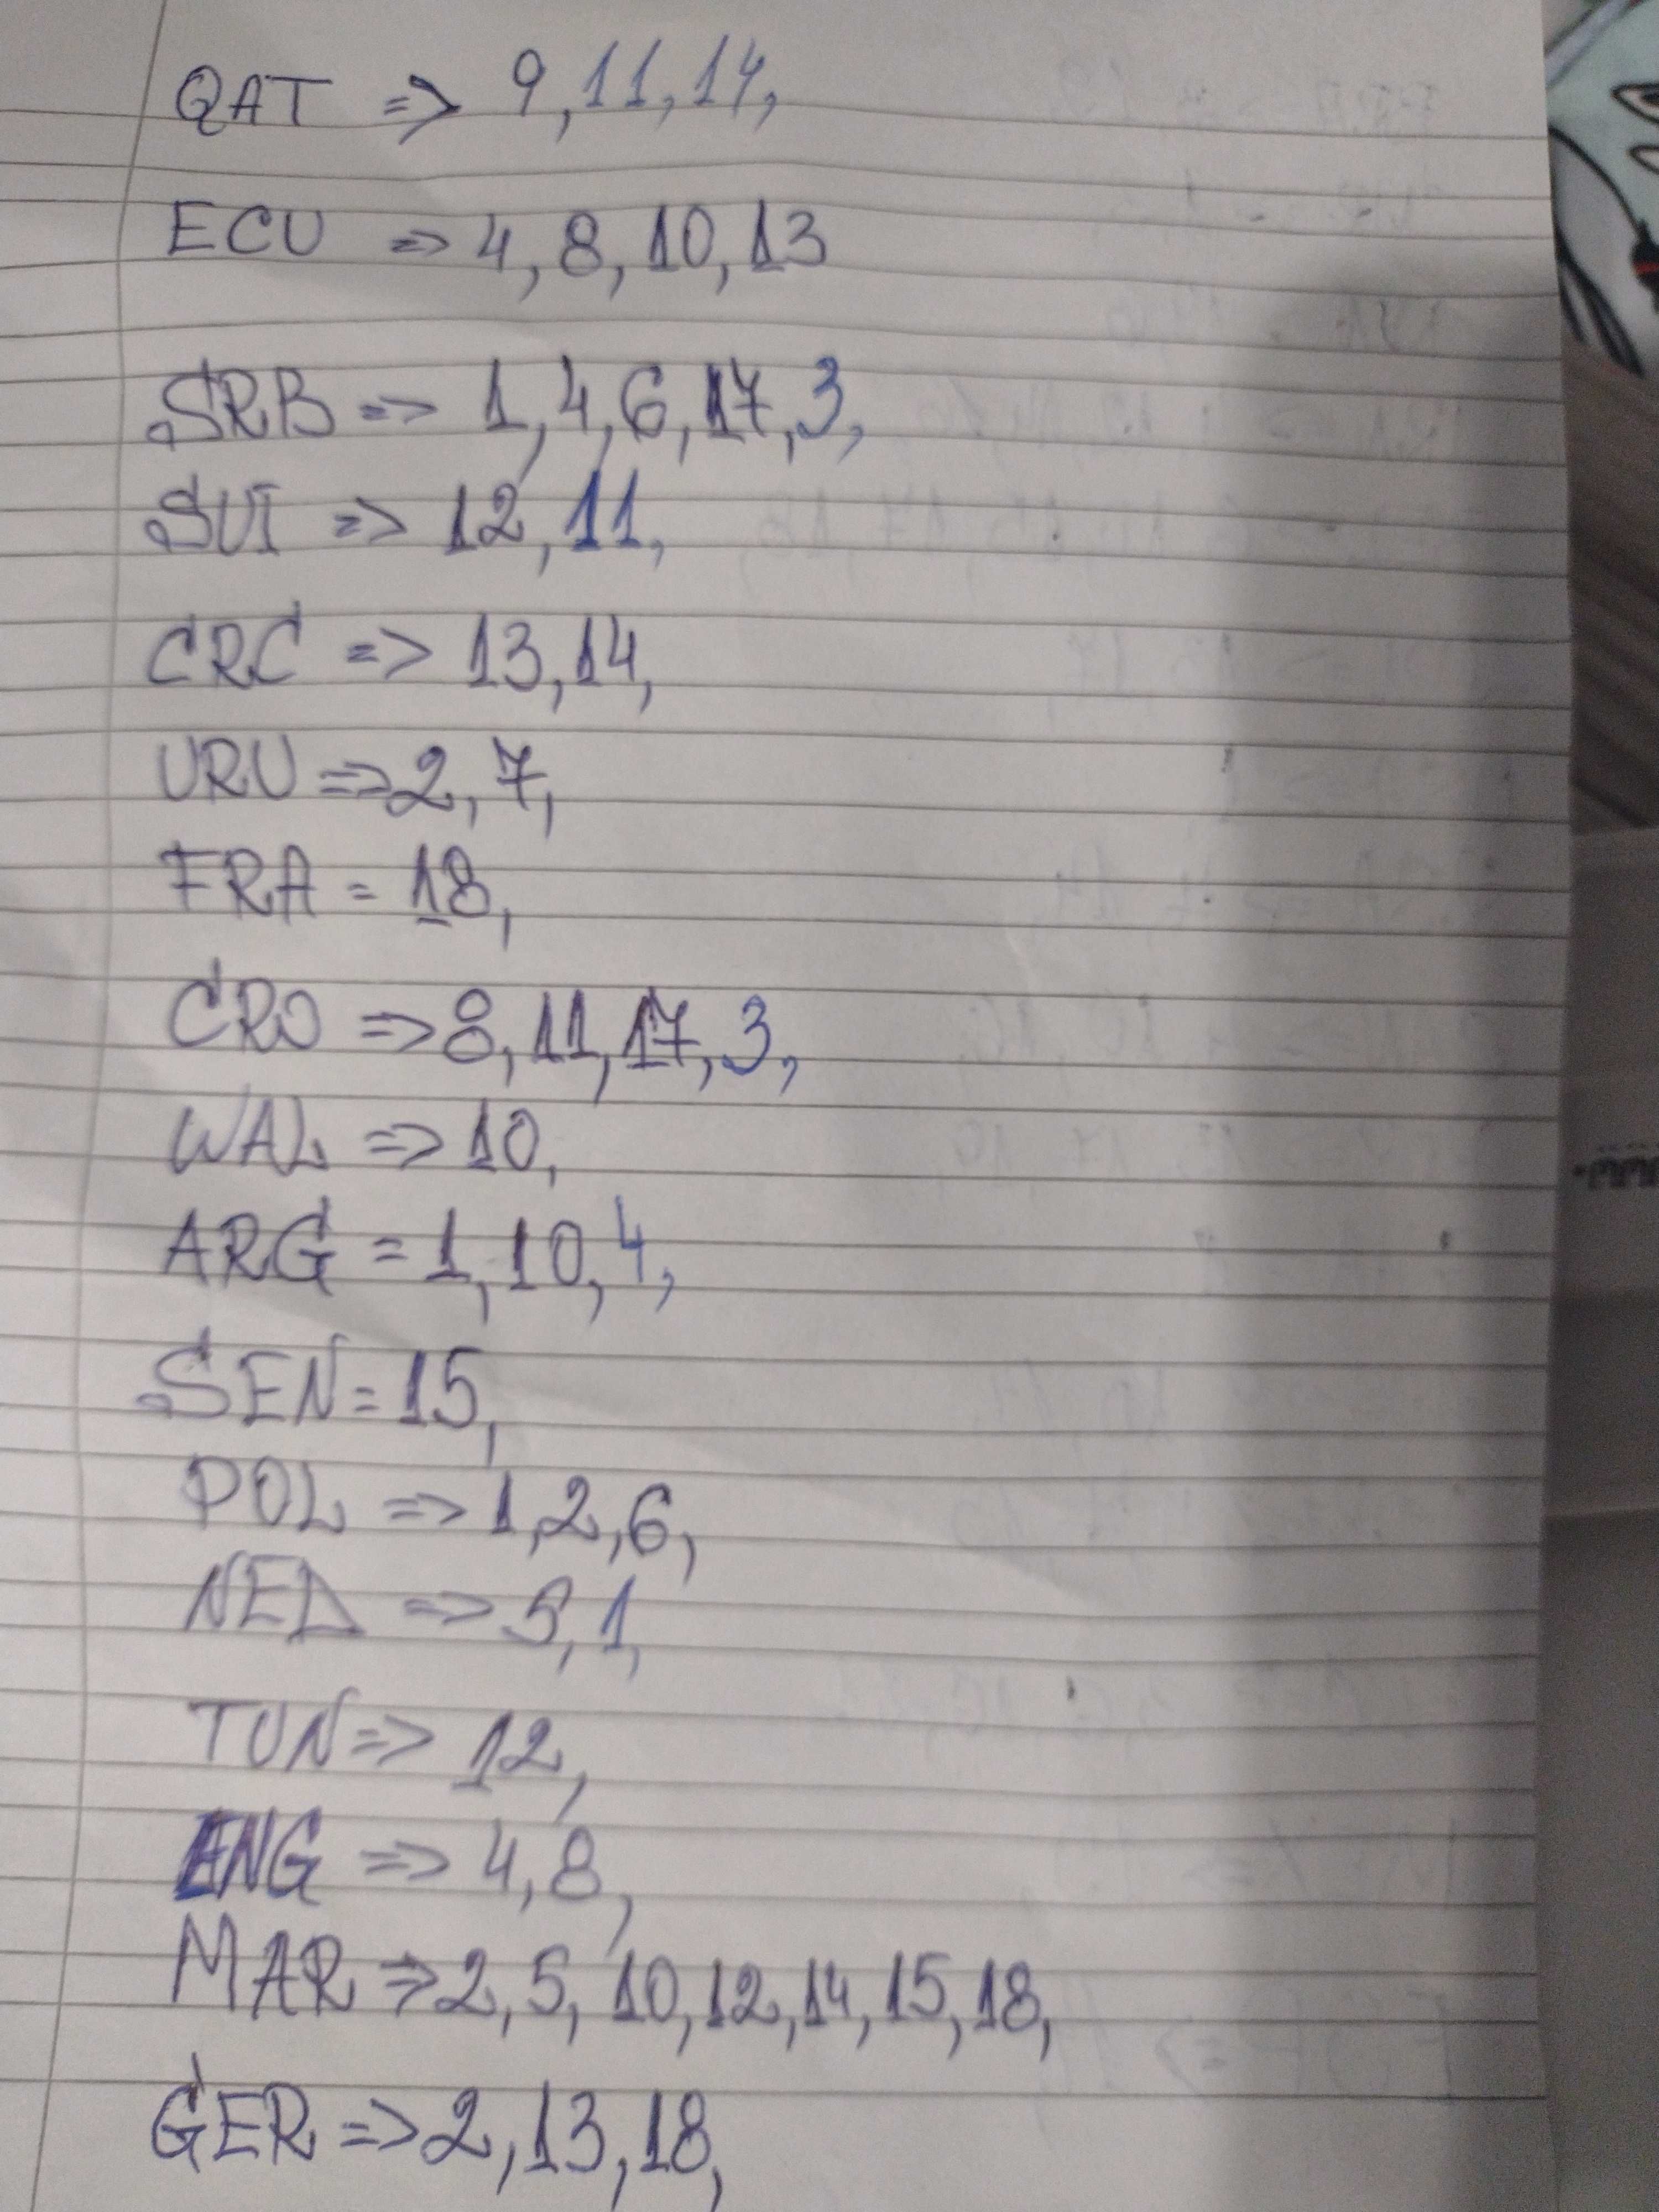 QAT => 9, 11, 14,
ECU => 4, 8, 10, 13
SRB => 1, 4, 6, 17, 3,
SUI => 12, 11,
CRC => 13, 14,
URU => 2, 7,
FRA = 18,
CRO => 8, 11, 17, 3,
WAL => 10,
ARG = 1, 10, 4,
SEN = 15,
POL => 1, 2, 6,
NED => 5, 1,
TUN => 12,
ENG => 4, 8,
MAR => 2, 5, 10, 12, 14, 15, 18,
GER => 2, 13, 18,